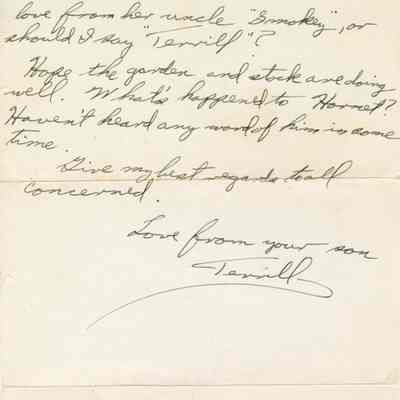 love from her uncle "Smokey", or
should I say "Terrill"?
Hope the garden and stock are doing
well. What's happened to Hornet?
Haven't heard any word of him in some
time.
Give my best regards to all
concerned.
Love from your son
Terrill